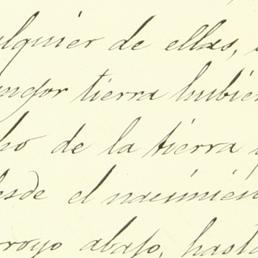 alquier de ellas,
mejor tierra hubie
ho de la tierra
desde el nacimie
rroyo abajo, hasta